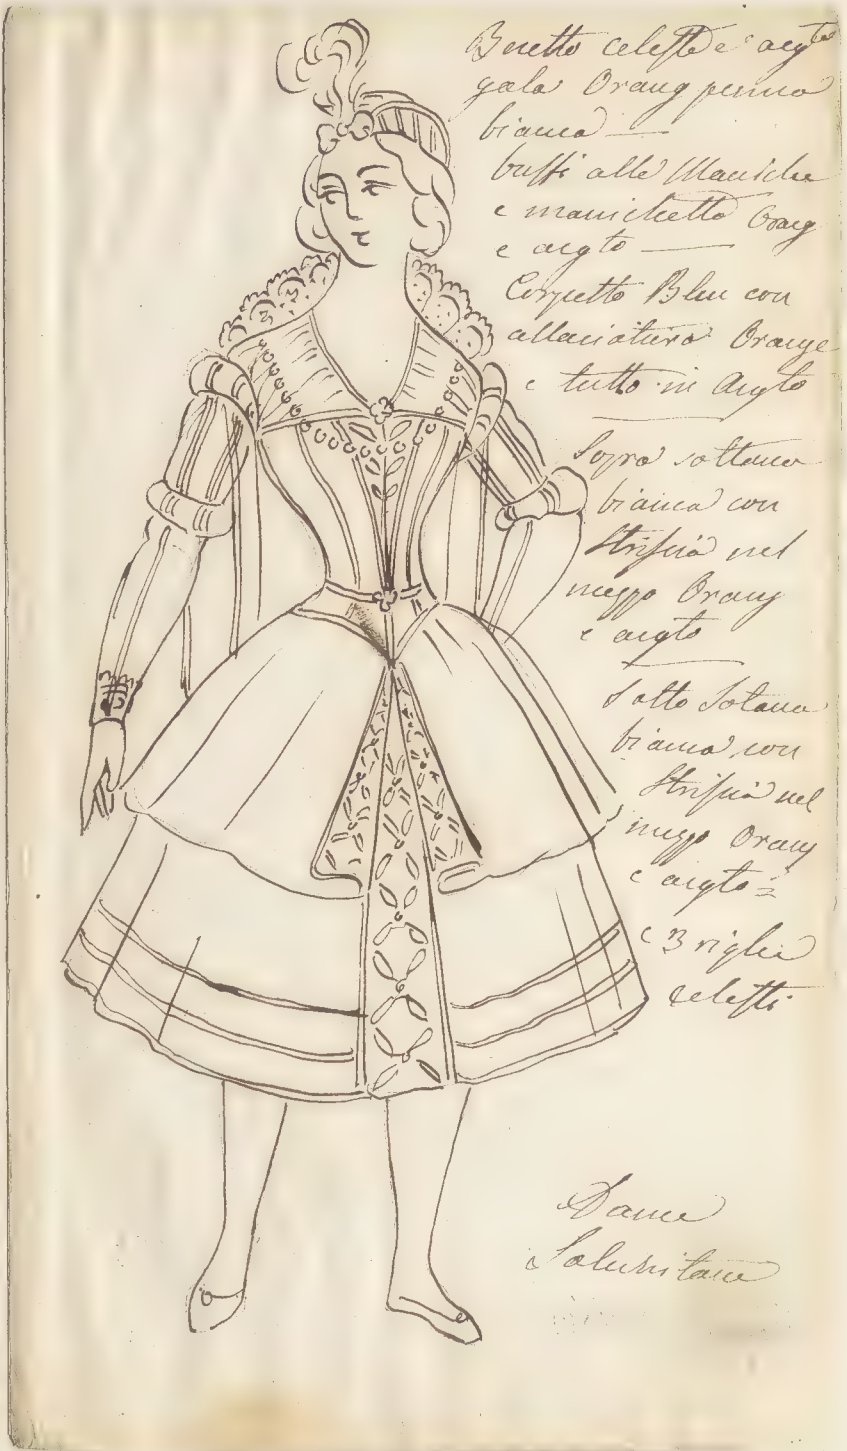 Beretto celeste e argto
gala Orang penna
bianca —
buffi alle Maniche
e manichetto Orang
e argto —
Corpetto Bleu con
allaciatura Orange
e tutto in Argto
Sopra sottana
bianca con
Striscia nel
mezzo Orang
e argto
Sotto Sotana
bianca con
Striscia nel
mezzo Orang
e argto =
e Briglie
celesti
Dame